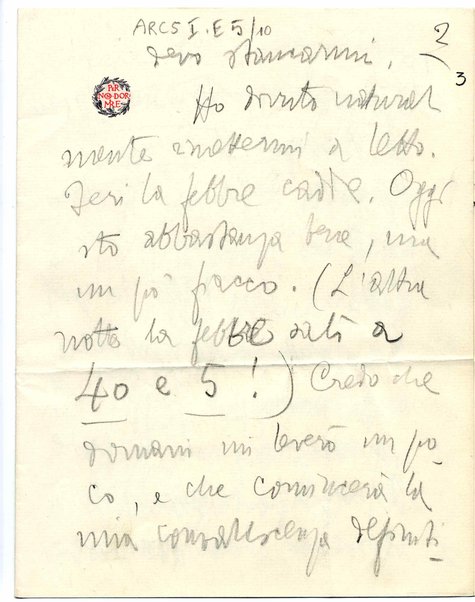 ARCS I. E5/10
2
3
devo stancarmi.
PER
NON DOR
MIRE
Ho dovuto natural
mente mettermi a letto.
Ieri la febbre cadde. Oggi
sto abbastanza bene, ma
un pò fiacco. (L'altra
notte la febbre salì a
40 e 5!) Credo che
domani mi leverò un po
co, e che comincerà la
mia convalescenza definiti-